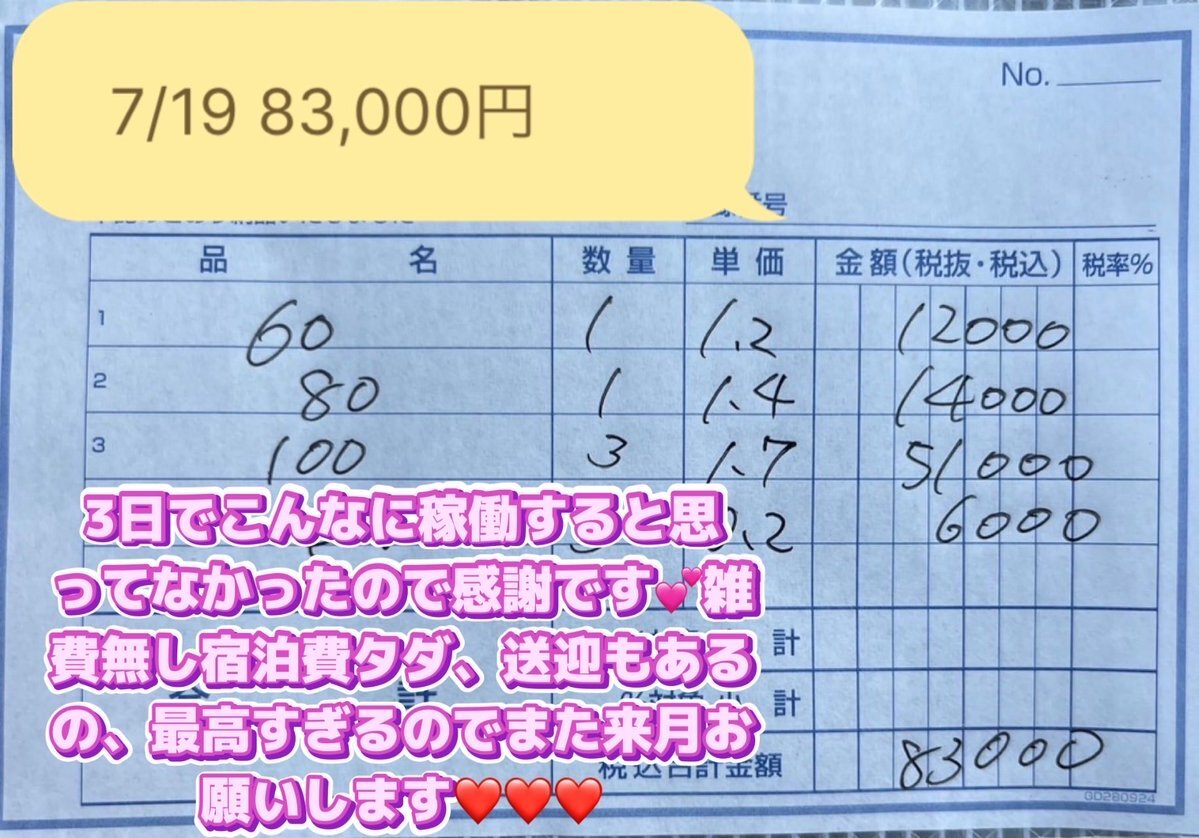 7/19 83,000円
No.
品 名 数量 単価 金額(税抜・税込) 税率%
1 60 1 1.2 12000
2 80 1 1.4 14000
3 100 3 1.7 51000
.2 6000
3日でこんなに稼働すると思
ってなかったので感謝です💕雑
費無し宿泊費タダ、送迎もある
の、最高すぎるのでまた来月お
願いします❤️❤️❤️
計
計
税込合計金額 83000
GD280924